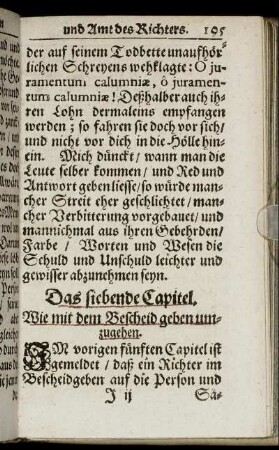 und Amt des Richters. 195
der auf seinem Todbette unaufhör-
lichen Schreyens wehklagte: O ju-
ramentum calumniæ, ô juramen-
tum calumniæ! Deßhalber auch ih-
ren Lohn dermaleins empfangen
werden; so fahren sie doch vor sich/
und nicht vor dich in die Hölle hin-
ein. Mich dünckt/ wann man die
Leute selber kommen/ und Red und
Antwort geben liesse/ so würde man-
cher Streit eher geschlichtet/ man-
cher Verbitterung vorgebauet/ und
mannichmal aus ihren Gebehrden/
Farbe/ Worten und Wesen die
Schuld und Unschuld leichter und
gewisser abzunehmen seyn.
Das siebende Capitel.
Wie mit dem Bescheid geben um-
zugehen.
IM vorigen fünften Capitel ist
gemeldet/ daß ein Richter im
Bescheidgeben auf die Person und
I ij Sa-